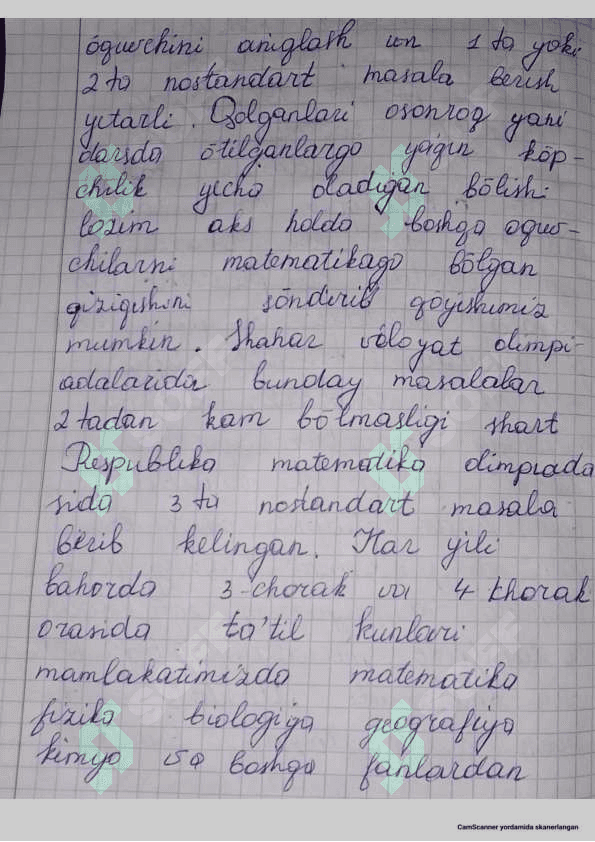 óquvchini aniqlash un 1 ta yoki
2 ta nostandart masala berish
yetarli. Qolganlari osonroq yani
darsda ótilganlarga yaqin kóp-
chilik yecha oladigan bólishi
lozim aks holda boshqa oquv-
chilarni matematikaga bólgan
qiziqishini sóndirib qóyishimiz
mumkin. Shahar viloyat olimpi-
adalarida bunday masalalar
2 tadan kam bólmasligi shart
Respublika matematika olimpiada
sida 3 ta nostandart masala
berib kelingan. Har yili
bahorda 3-chorak va 4 chorak
orasida ta'til kunlari
mamlakatimizda matematika
fizika biologiya geografiya
kimyo va boshqa fanlardan
CamScanner yordamida skanerlangan